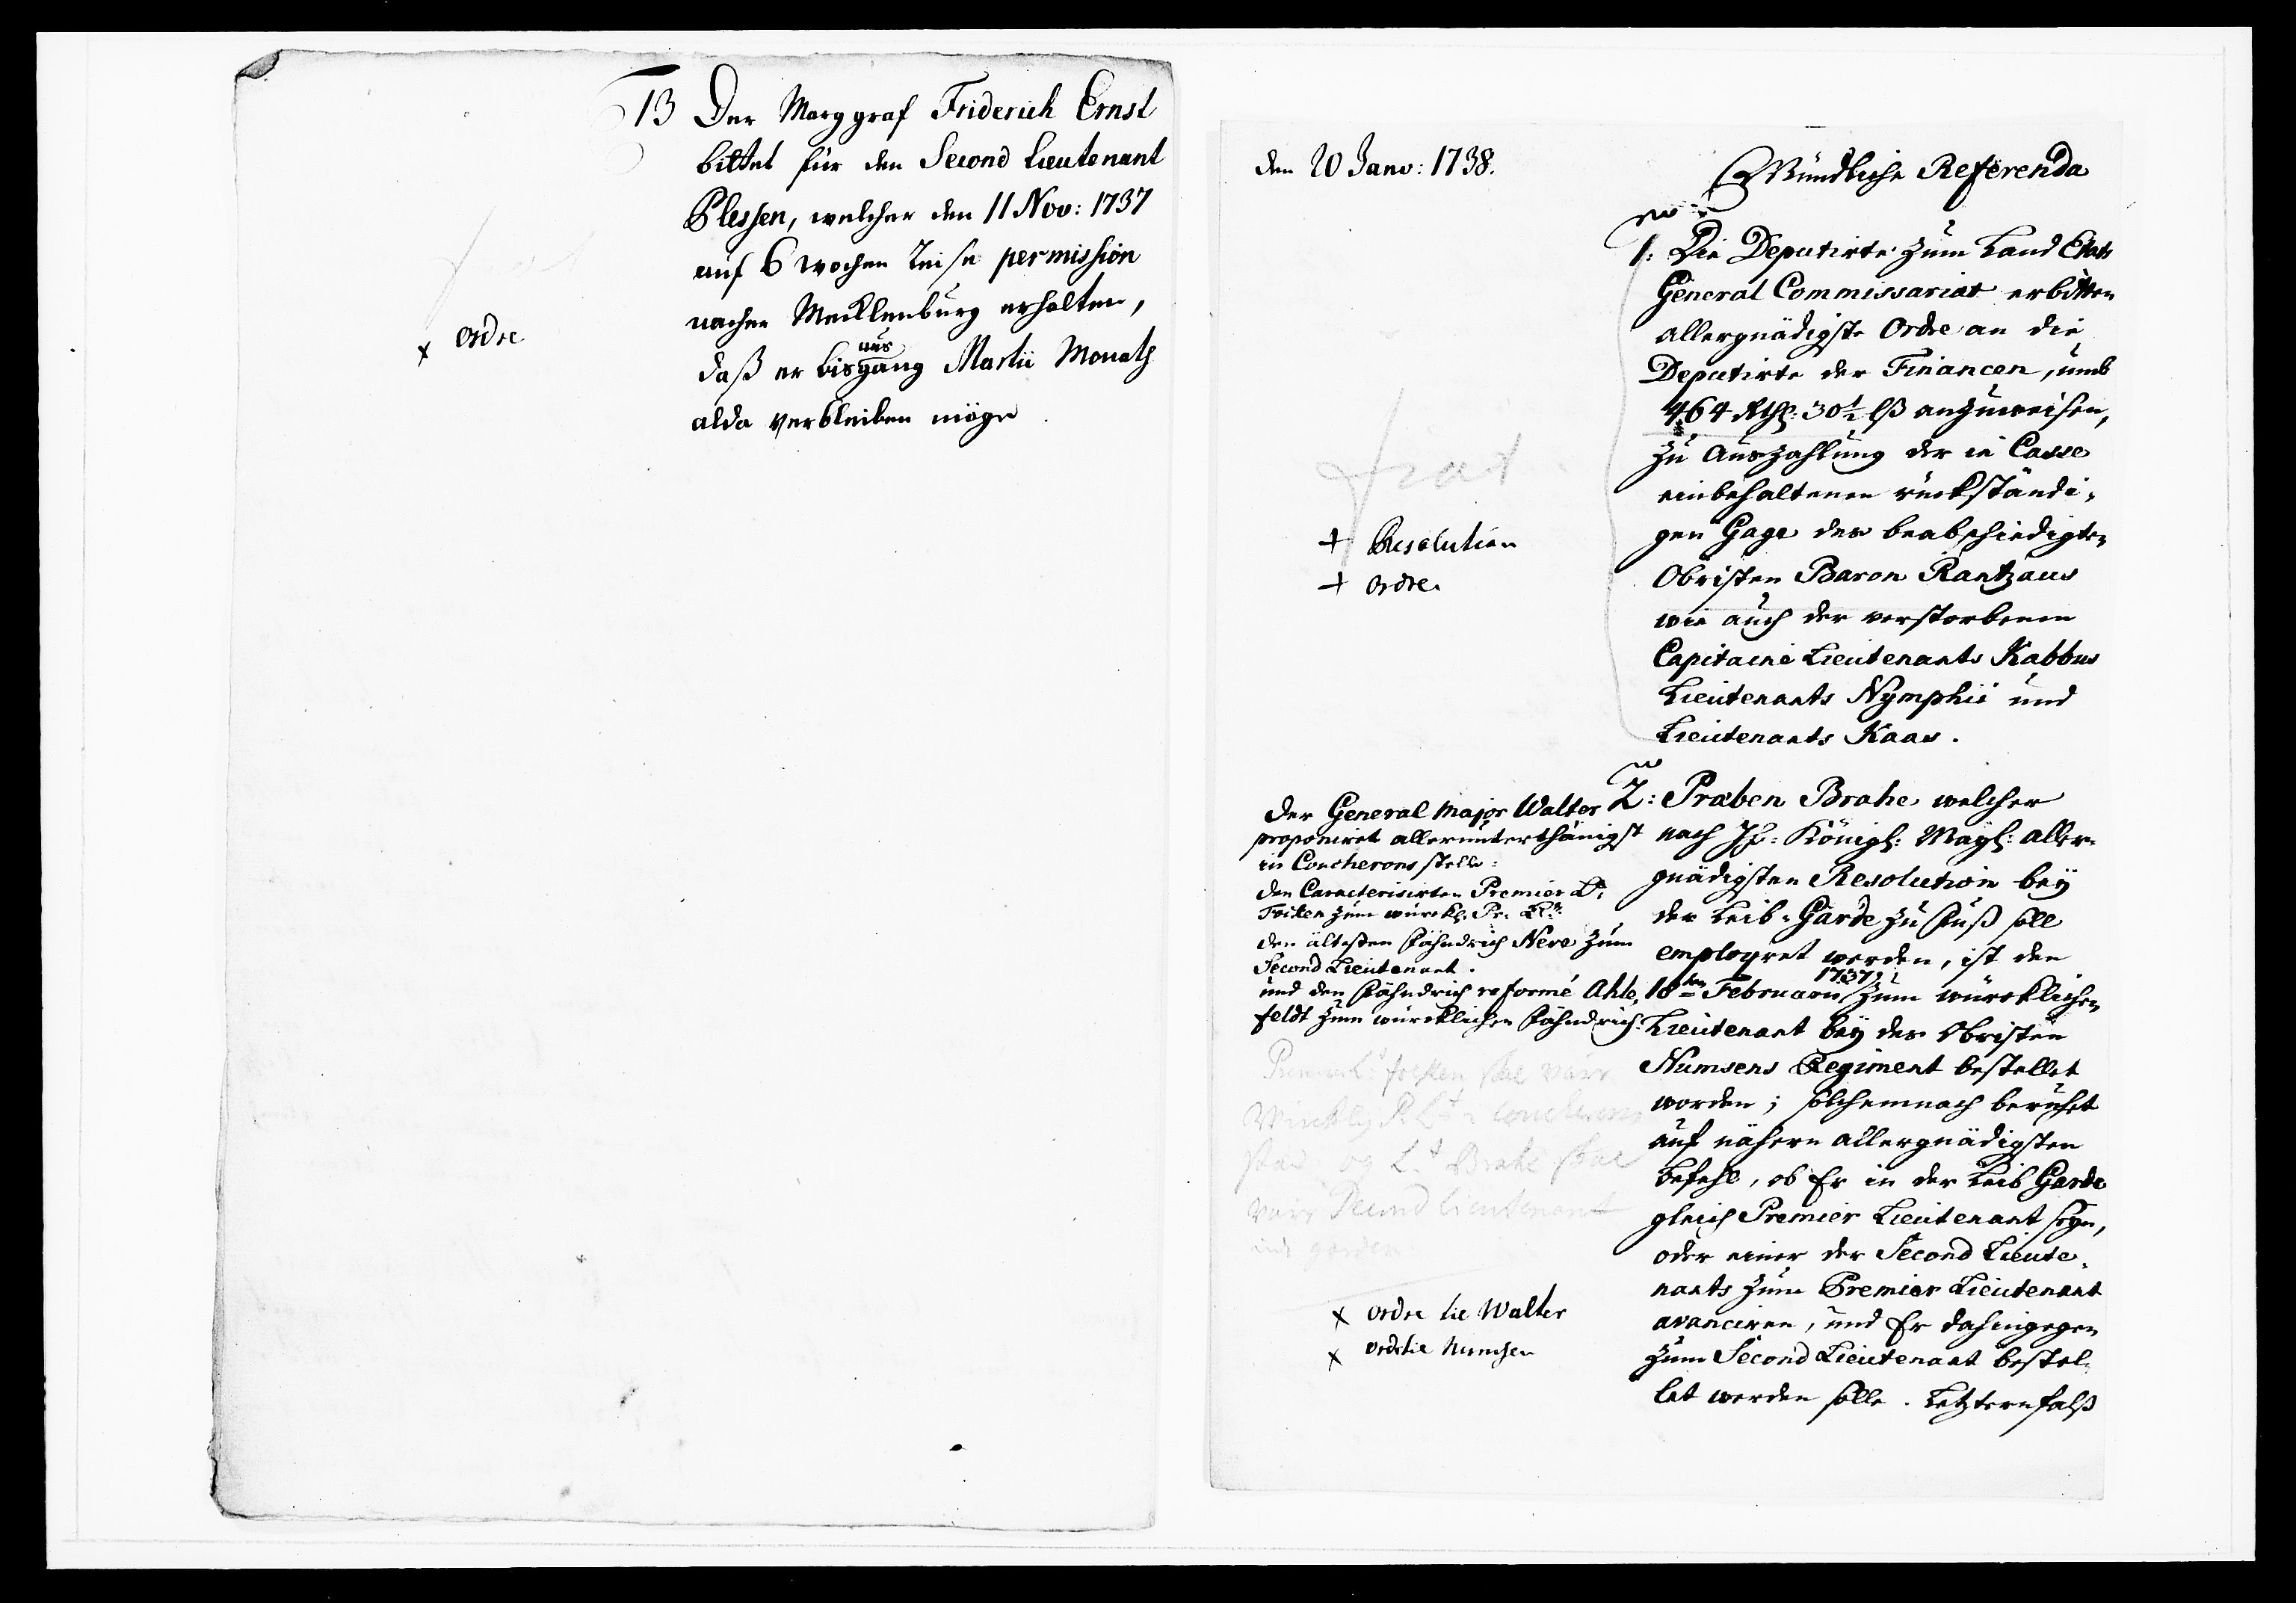 13 Der Marggraf Friderich Ernst
bittet für den Second Lieutenant
Plessen, welcher den 11 Nov: 1737
auf 6 wochen Reise permission
nacher Mecklenburg erhalten,
daß er bis aus gang Martii Monaths
alda verbleiben möge
x ordre
den 20 Janv: 1738.
Mündliche Referenda
1: Die Deputirte zum Land Etats
General Commissariat erbitten
allergnädigste Ordre an die
Deputirte der Financen, umb
464 Rthl: 30½ lß anzuweisen,
zu Auszahlung der in Casse
einbehaltenen rückständi-
gen Gage des beabschiedigten
Obristen Baron Rantzaus
wie auch der verstorbenen
Capitaine Lieutenants Kabbus
Lieutenants Nymphii und
Lieutenants Kaas.
fiat
+ Resolution
+ ordre
2: Præben Brahe welcher
nach Ihr: Königl: Mayt: aller-
gnädigsten Resolution bey
der Leib-Garde zu Fuß soll
employret werden, ist den
18ten Februarii 1737 zum würcklichen
Lieutenant bey des Obristen
Numsens Regiment bestellet
worden; solchemnach beruhet
auf nähern allergnädigsten
Befehl, ob Er in der Leib Garde
gleich Premier Lieutenant seyn,
oder einer der Second Lieute-
nants zum Premier Lieutenant
avanciren, und Er dahingegen
zum Second Lieutenant bestel-
let werden solle. Letztern falß
der General Major Walter
proponiret allerunterthänigst
in Coucherons stelle:
den Caracterisirten Premier Lt:
zum würckl: Pr: Lt:
den ältesten Fähndrich Nere zum
Second Lieutenant.
und den Fähndrich reformé Ahle-
feldt zum würcklichen Fähndrich.
Premier Lt skal være
Wircklig P: Lt i Coucherons
stæd, og Lt Brahe skal
være Second lieutenant
ved garden
x ordre tie Walter
x ordre tie Numsen